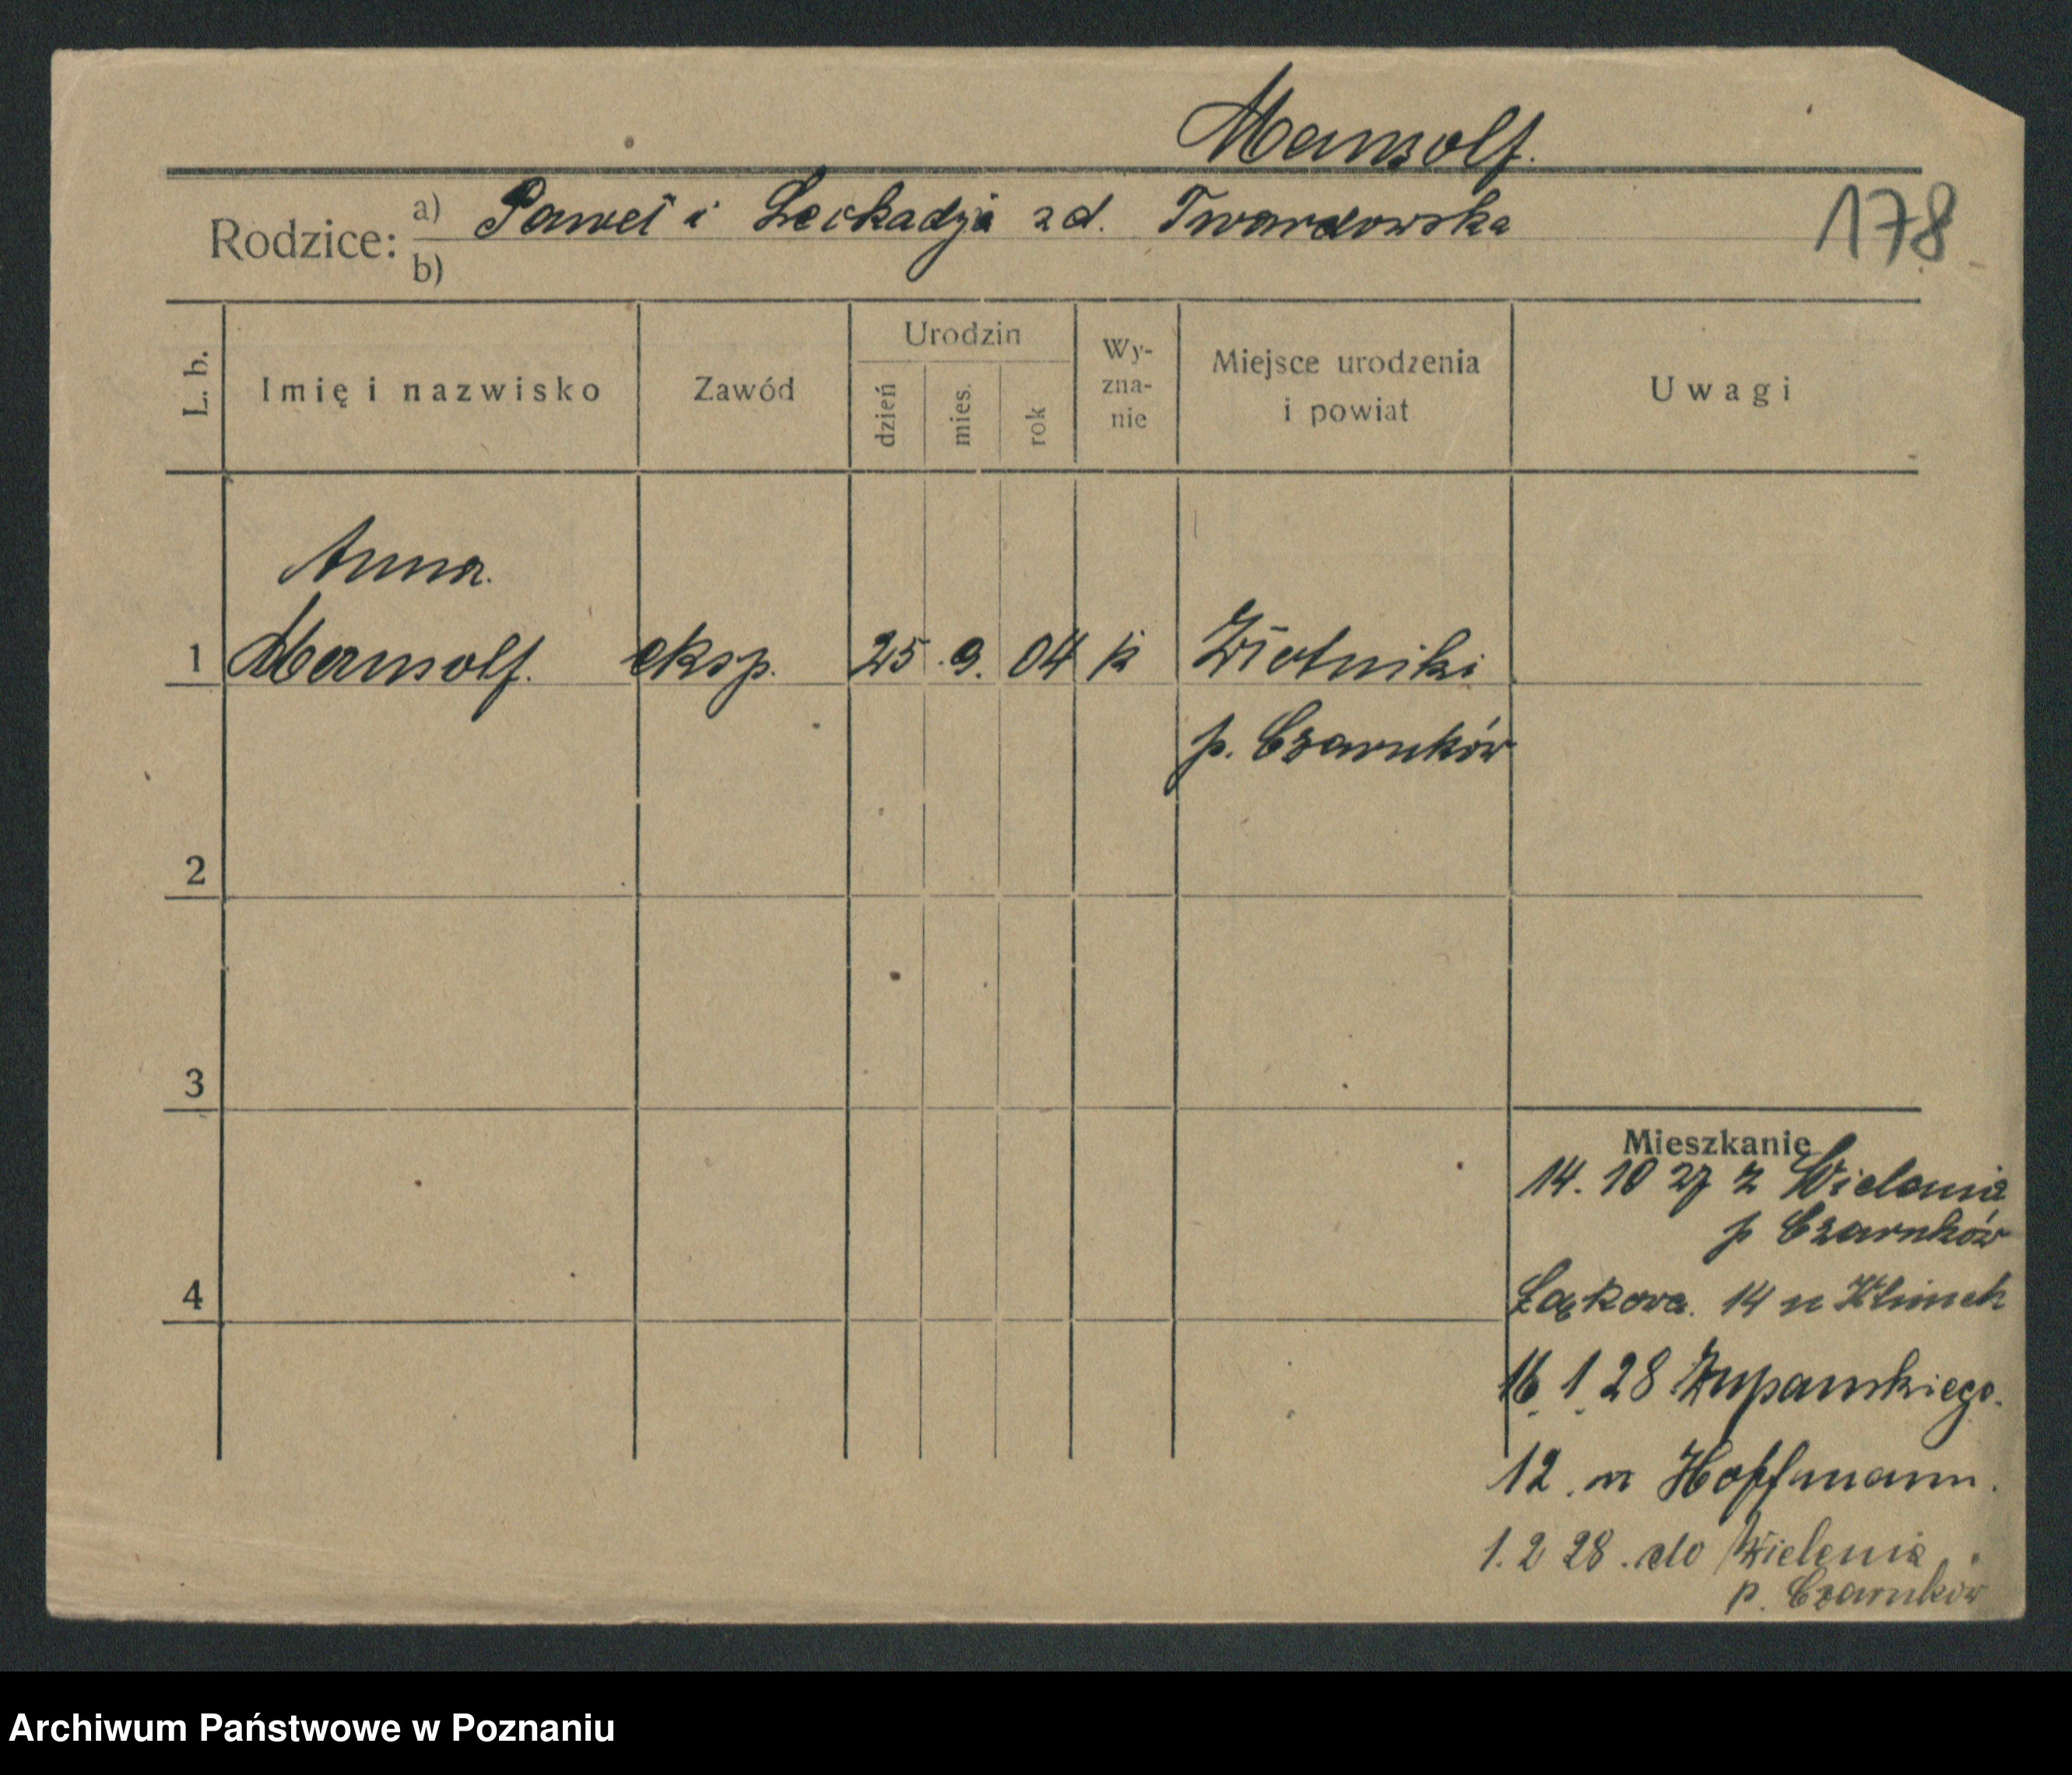 Mansolf.
178
Rodzice: a) Paweł i Leokadja zd. Twardowska
b)
L. b. Imię i nazwisko Zawód Urodzin dzień mies. rok Wy- zna- nie Miejsce urodzenia i powiat Uwagi
Anna
1 Mansolf. eksp. 25. 9. 04 k Złotniki
p. Czarnków
2
3
Mieszkanie
14. 10 27 z Wielenia
p Czarnków
4
Łąkowa. 14 u Klimek
16. 1. 28 Żupańskiego.
12. u Hoffmann.
1. 2 28. do Wielenia
p. Czarnków
Archiwum Państwowe w Poznaniu